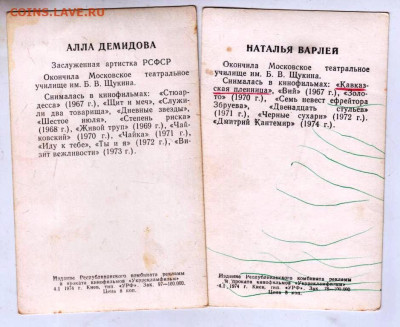 COINS.LAVE.RU
АЛЛА ДЕМИДОВА
Заслуженная артистка РСФСР
Окончила Московское театральное
училище им. Б. В. Щукина.
Снималась в кинофильмах: «Стюар-
десса» (1967 г.), «Щит и меч», «Служи-
ли два товарища», «Дневные звезды»,
«Шестое июля», «Степень риска»
(1968 г.), «Живой труп» (1969 г.), «Чай-
ковский» (1970 г.), «Чайка» (1971 г.),
«Иду к тебе», «Ты и я» (1972 г.), «Ви-
зит вежливости» (1973 г.).
Издание Республиканского комбината рекламы
и проката кинофильмов «Укррекламфильм»
4.2 1974 г. Киев, тип. «УРФ». Зак. 97—100.000.
Цена 8 коп.
НАТАЛЬЯ ВАРЛЕЙ
Окончила Московское театральное
училище им. Б. В. Щукина.
Снималась в кинофильмах: «Кавказ-
ская пленница», «Вий» (1967 г.), «Золо-
то» (1970 г.), «Семь невест ефрейтора
Збруева», «Двенадцать стульев»
(1971 г.), «Черные сухари» (1972 г.)
«Дмитрий Кантемир» (1974 г.).
Издание Республиканского комбината рекламы
и проката кинофильмов «Укррекламфильм»
4.2 1974 г. Киев, тип. «УРФ». Зак. —100.000.
Цена 8 коп.